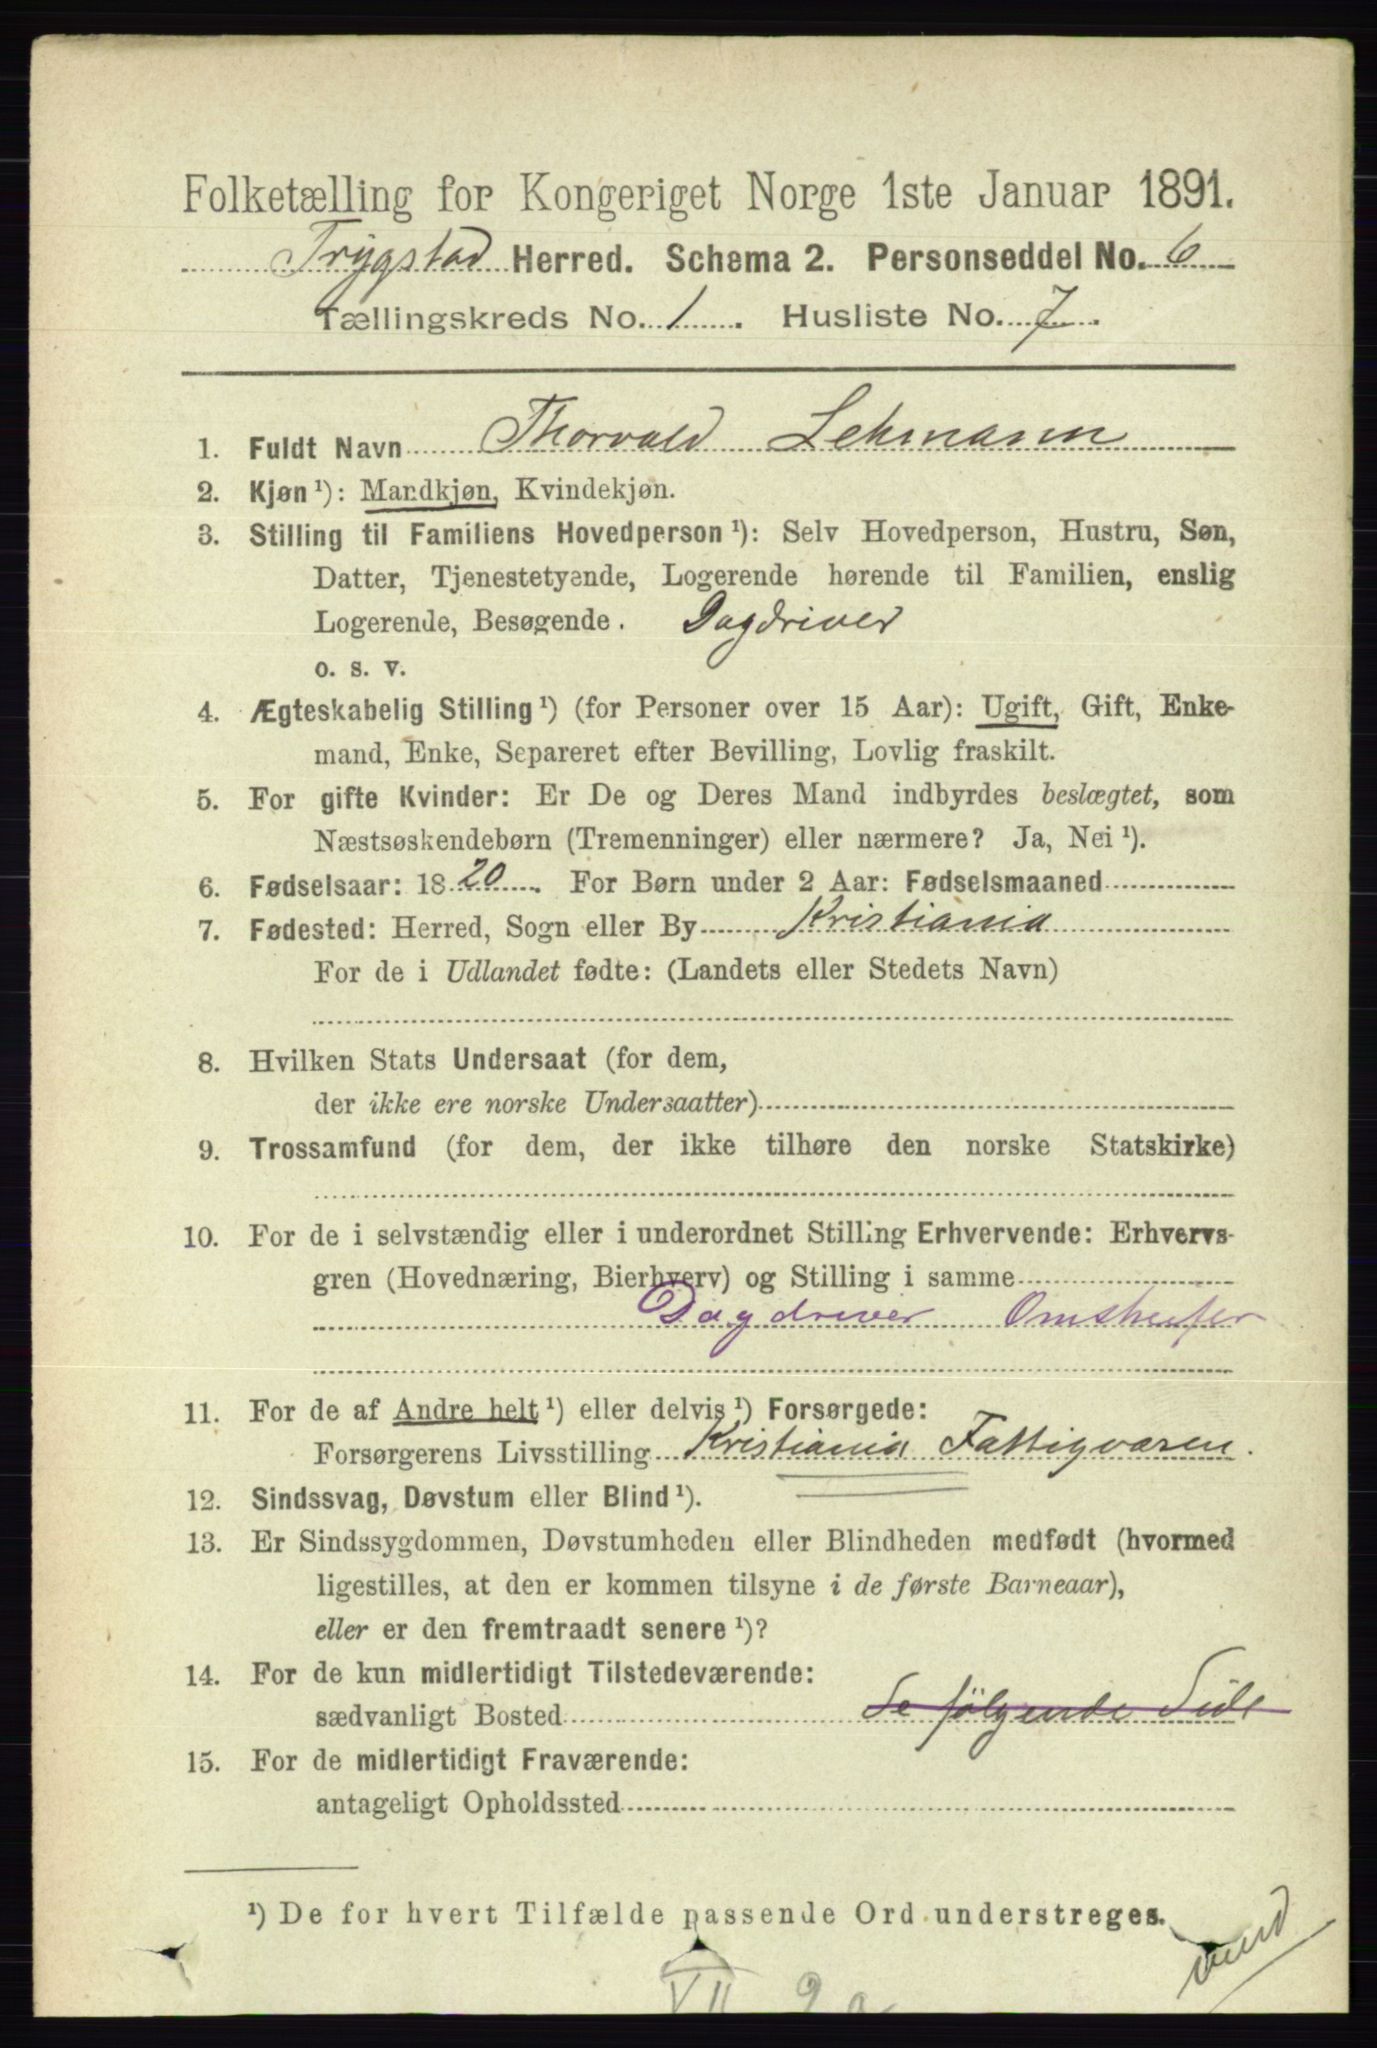 Folketælling for Kongeriget Norge 1ste Januar 1891.
Trygstad Herred. Schema 2. Personseddel No. 6
Tællingskreds No. 1. Husliste No. 7.
1. Fuldt Navn Thorvald Lehmann
2. Kjøn¹): Mandkjøn, Kvindekjøn.
3. Stilling til Familiens Hovedperson¹): Selv Hovedperson, Hustru, Søn,
Datter, Tjenestetyende, Logerende hørende til Familien, enslig
Logerende, Besøgende. Dagdriver
o. s. v.
4. Ægteskabelig Stilling¹) (for Personer over 15 Aar): Ugift, Gift, Enke-
mand, Enke, Separeret efter Bevilling, Lovlig fraskilt.
5. For gifte Kvinder: Er De og Deres Mand indbyrdes beslægtet, som
Næstsøskendebørn (Tremenninger) eller nærmere? Ja, Nei¹).
6. Fødselsaar: 1820. For Børn under 2 Aar: Fødselsmaaned
7. Fødested: Herred, Sogn eller By Kristiania
For de i Udlandet fødte: (Landets eller Stedets Navn)
8. Hvilken Stats Undersaat (for dem,
der ikke ere norske Undersaatter)
9. Trossamfund (for dem, der ikke tilhøre den norske Statskirke)
10. For de i selvstændig eller i underordnet Stilling Erhvervende: Erhvervs-
gren (Hovednæring, Bierhverv) og Stilling i samme
Dagdriver Omstreifer
11. For de af Andre helt¹) eller delvis¹) Forsørgede:
Forsørgerens Livsstilling Kristiania Fattigvæsen.
12. Sindssvag, Døvstum eller Blind¹).
13. Er Sindssygdommen, Døvstumheden eller Blindheden medfødt (hvormed
ligestilles, at den er kommen tilsyne i de første Barneaar),
eller er den fremtraadt senere¹)?
14. For de kun midlertidigt Tilstedeværende:
sædvanligt Bosted Se følgende Side
15. For de midlertidigt Fraværende:
antageligt Opholdssted
¹) De for hvert Tilfælde passende Ord understreges.
vend
VII 9a